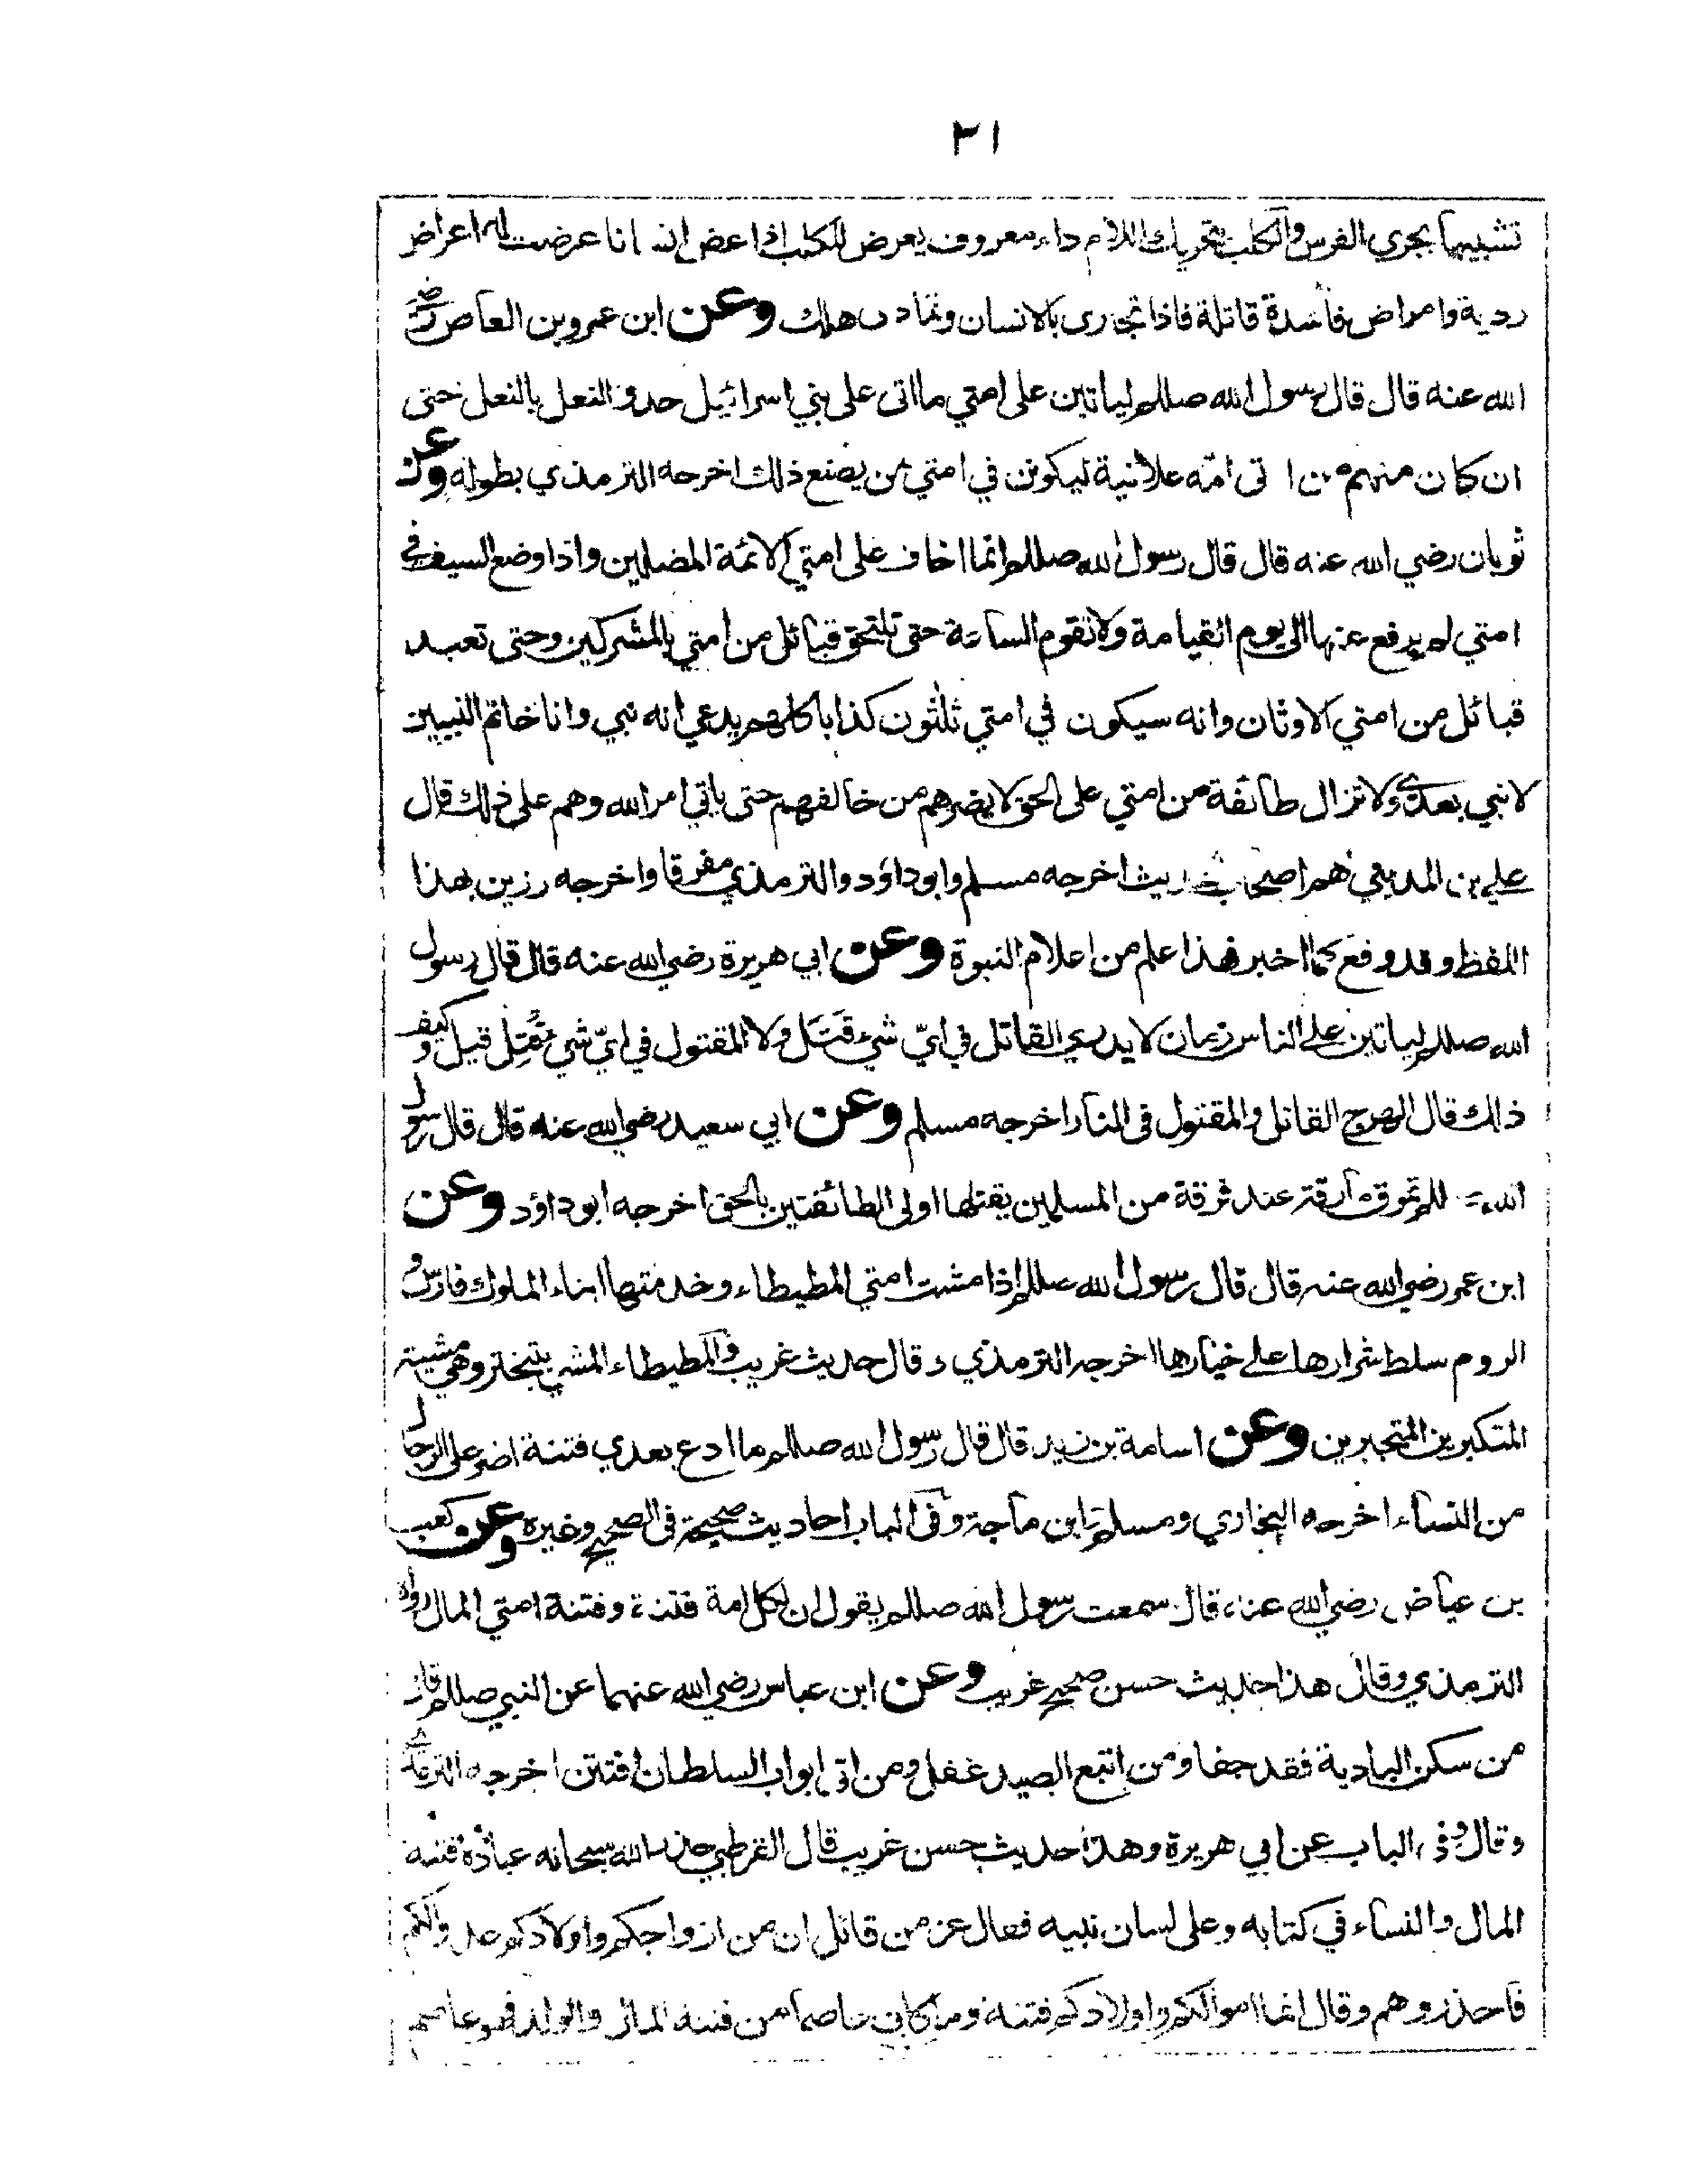 ٣١
تشبيها بجري الفرس والكلب بتحريك اللام داء معروف يعرض للكلب اذا عض انسانا عرضت له اعراض
ردية وامراض فاسدة قاتلة فاذا تجارى بالانسان وتمادى هلك وعن ابن عمرو بن العاص رضي
الله عنه قال قال رسول الله صللم لياتين على امتي ما اتى على بني اسرائيل حذو النعل بالنعل حتى
ان كان منهم من اتى امّه علانية ليكونن في امتي من يصنع ذلك اخرجه الترمذي بطوله وعن
ثوبان رضي الله عنه قال قال رسول الله صللم انما اخاف على امتي الائمة المضلين واذا وضع السيف في
امتي لم يرفع عنها الى يوم القيامة ولا تقوم الساعة حتى تلتحق قبائل من امتي بالمشركين وحتى تعبد
قبائل من امتي الاوثان وانه سيكون في امتي ثلثون كذابا كلهم يدعي انه نبي وانا خاتم النبيين
لا نبي بعدي ولا تزال طائفة من امتي على الحق لا يضرهم من خالفهم حتى ياتي امر الله وهم على ذلك قال
علي بن المديني هم اصحاب الحديث اخرجه مسلم وابوداؤد والترمذي مفرقا واخرجه رزين بهذا
اللفظ وقد وقع كما اخبر فهذا علم من اعلام النبوة وعن ابي هريرة رضي الله عنه قال قال رسول
الله صللم لياتين على الناس زمان لا يدري القاتل في ايّ شيء قَتَل ولا المقتول في ايّ شيء قُتِل قيل وكيف
ذلك قال الهرج القاتل والمقتول في النار اخرجه مسلم وعن ابي سعيد رضي الله عنه قال قال رسول
الله صللم تمرق مارقة عند فرقة من المسلمين يقتلها اولى الطائفتين بالحق اخرجه ابوداؤد وعن
ابن عمر رضي الله عنه قال قال رسول الله صللم اذا مشت امتي المطيطاء وخدمتها ابناء الملوك فارس و
الروم سلط شرارها على خيارها اخرجه الترمذي وقال حديث غريب والمطيطاء المشي بتبختر وهي مشية
المتكبرين المتجبرين وعن اسامة بن زيد قال قال رسول الله صللم ما ادع بعدي فتنة اضر على الرجال
من النساء اخرجه البخاري ومسلم وابن ماجة وفي الباب احاديث صحيحة في الصحيح وغيره وعن كعب
بن عياض رضي الله عنه قال سمعت رسول الله صللم يقول ان لكل امة فتنة وفتنة امتي المال رواه
الترمذي وقال هذا حديث حسن صحيح غريب وعن ابن عباس رضي الله عنهما عن النبي صللم قال
من سكن البادية فقد جفا ومن اتبع الصيد غفل ومن اتى ابواب السلطان افتتن اخرجه الترمذي
وقال وفي الباب عن ابي هريرة وهذا حديث حسن غريب قال القرطبي حذر الله سبحانه عباده فتنة
المال والنساء في كتابه وعلى لسان نبيه فقال عز من قائل ان من ازواجكم واولادكم عدوا لكم
فاحذروهم وقال انما اموالكم واولادكم فتنة وما كان عاصما من فتنة المال والولد فهو عاصم